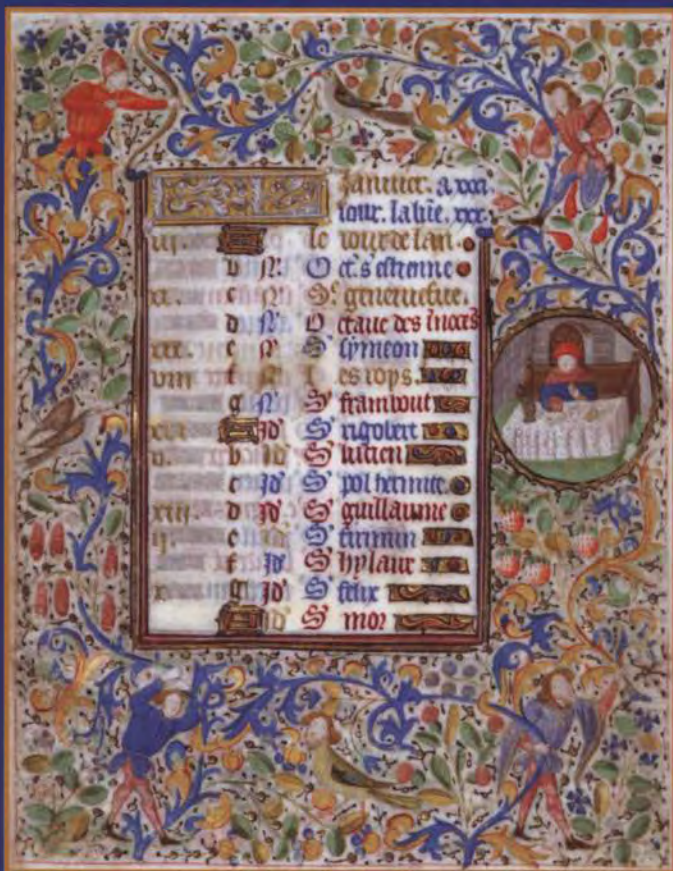 Januier. a xxxi
iour. la lune. xxx.
iii. A le iour de lan.
b N. Oct. s estienne
xi. c N. Sͤ. geneuiefue.
d N. Octaue des inoces
xix. e N. S͛ symeon
viii f N. Les roys.
g N. S͛ frambout
xvi A Id. S͛ rigobert
v. b Id. S͛ lucien
c Id. S͛ pol hermite.
xiii. d Id. S͛ guillaume
ii. e Id. S͛ firmin
f Id. S͛ hylaire
x g Id. S͛ felix
A Id. S͛ mor